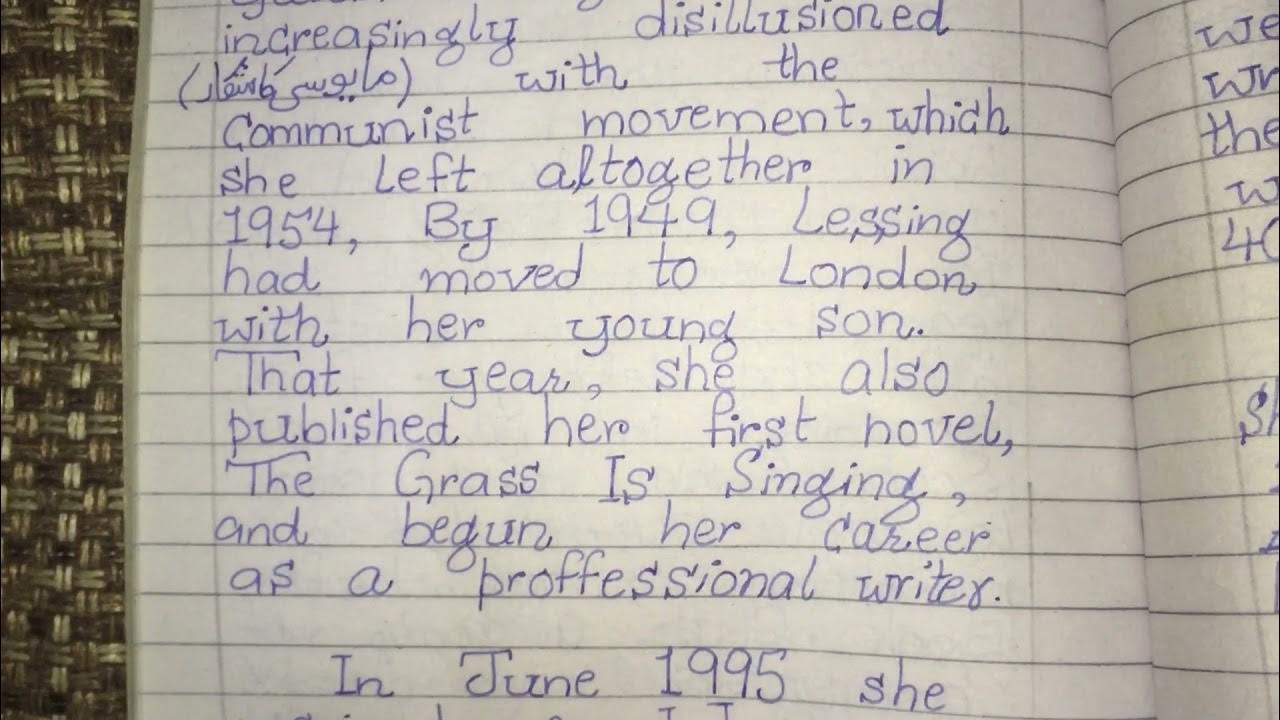 increasingly disillusioned
(مایوسی کا شکار) with the
Communist movement, which
she left altogether in
1954, By 1949, Lessing
had moved to London
with her young son.
That year, she also
published her first novel,
The Grass Is Singing,
and begun her career
as a proffessional writer.
In June 1995 she
we
the